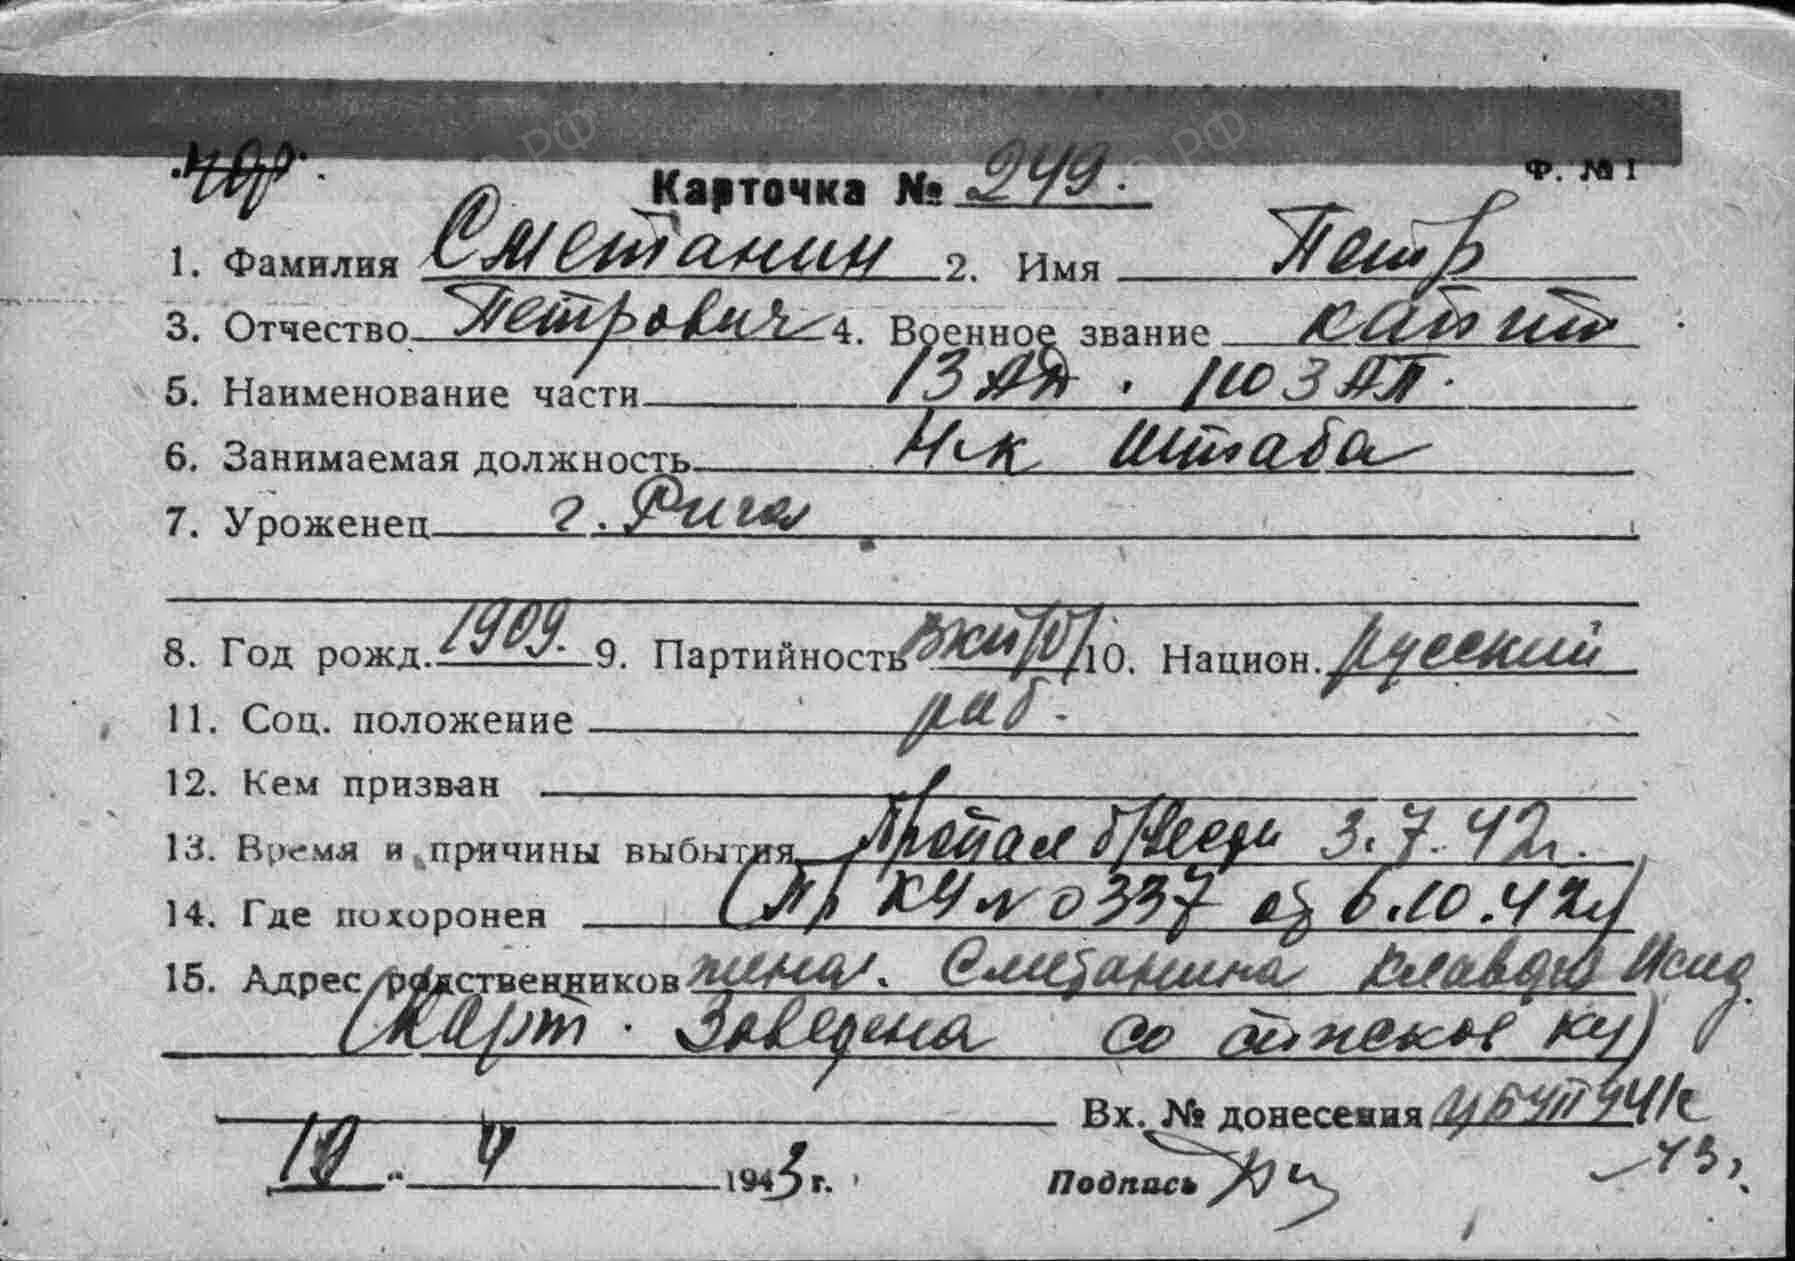 Ф. № 1
Карточка № 249.
1. Фамилия Сметанин 2. Имя Петр
3. Отчество Петрович 4. Военное звание капит
5. Наименование части 13 АД. 1103 АП.
6. Занимаемая должность Н-к штаба
7. Уроженец г. Рига
8. Год рожд. 1909. 9. Партийность ВКП/б/ 10. Национ. русский
11. Соц. положение раб.
12. Кем призван
13. Время и причины выбытия Пропал б/вести 3.7.42г.
14. Где похоронен (Пр КЧ № 0337 от 6.10.42г)
15. Адрес родственников жена. Сметанина Клавдия Исид.
(Карт. Заведена со списков КЧ)
Вх. № донесения
19 4 1943 г. Подпись
43г.